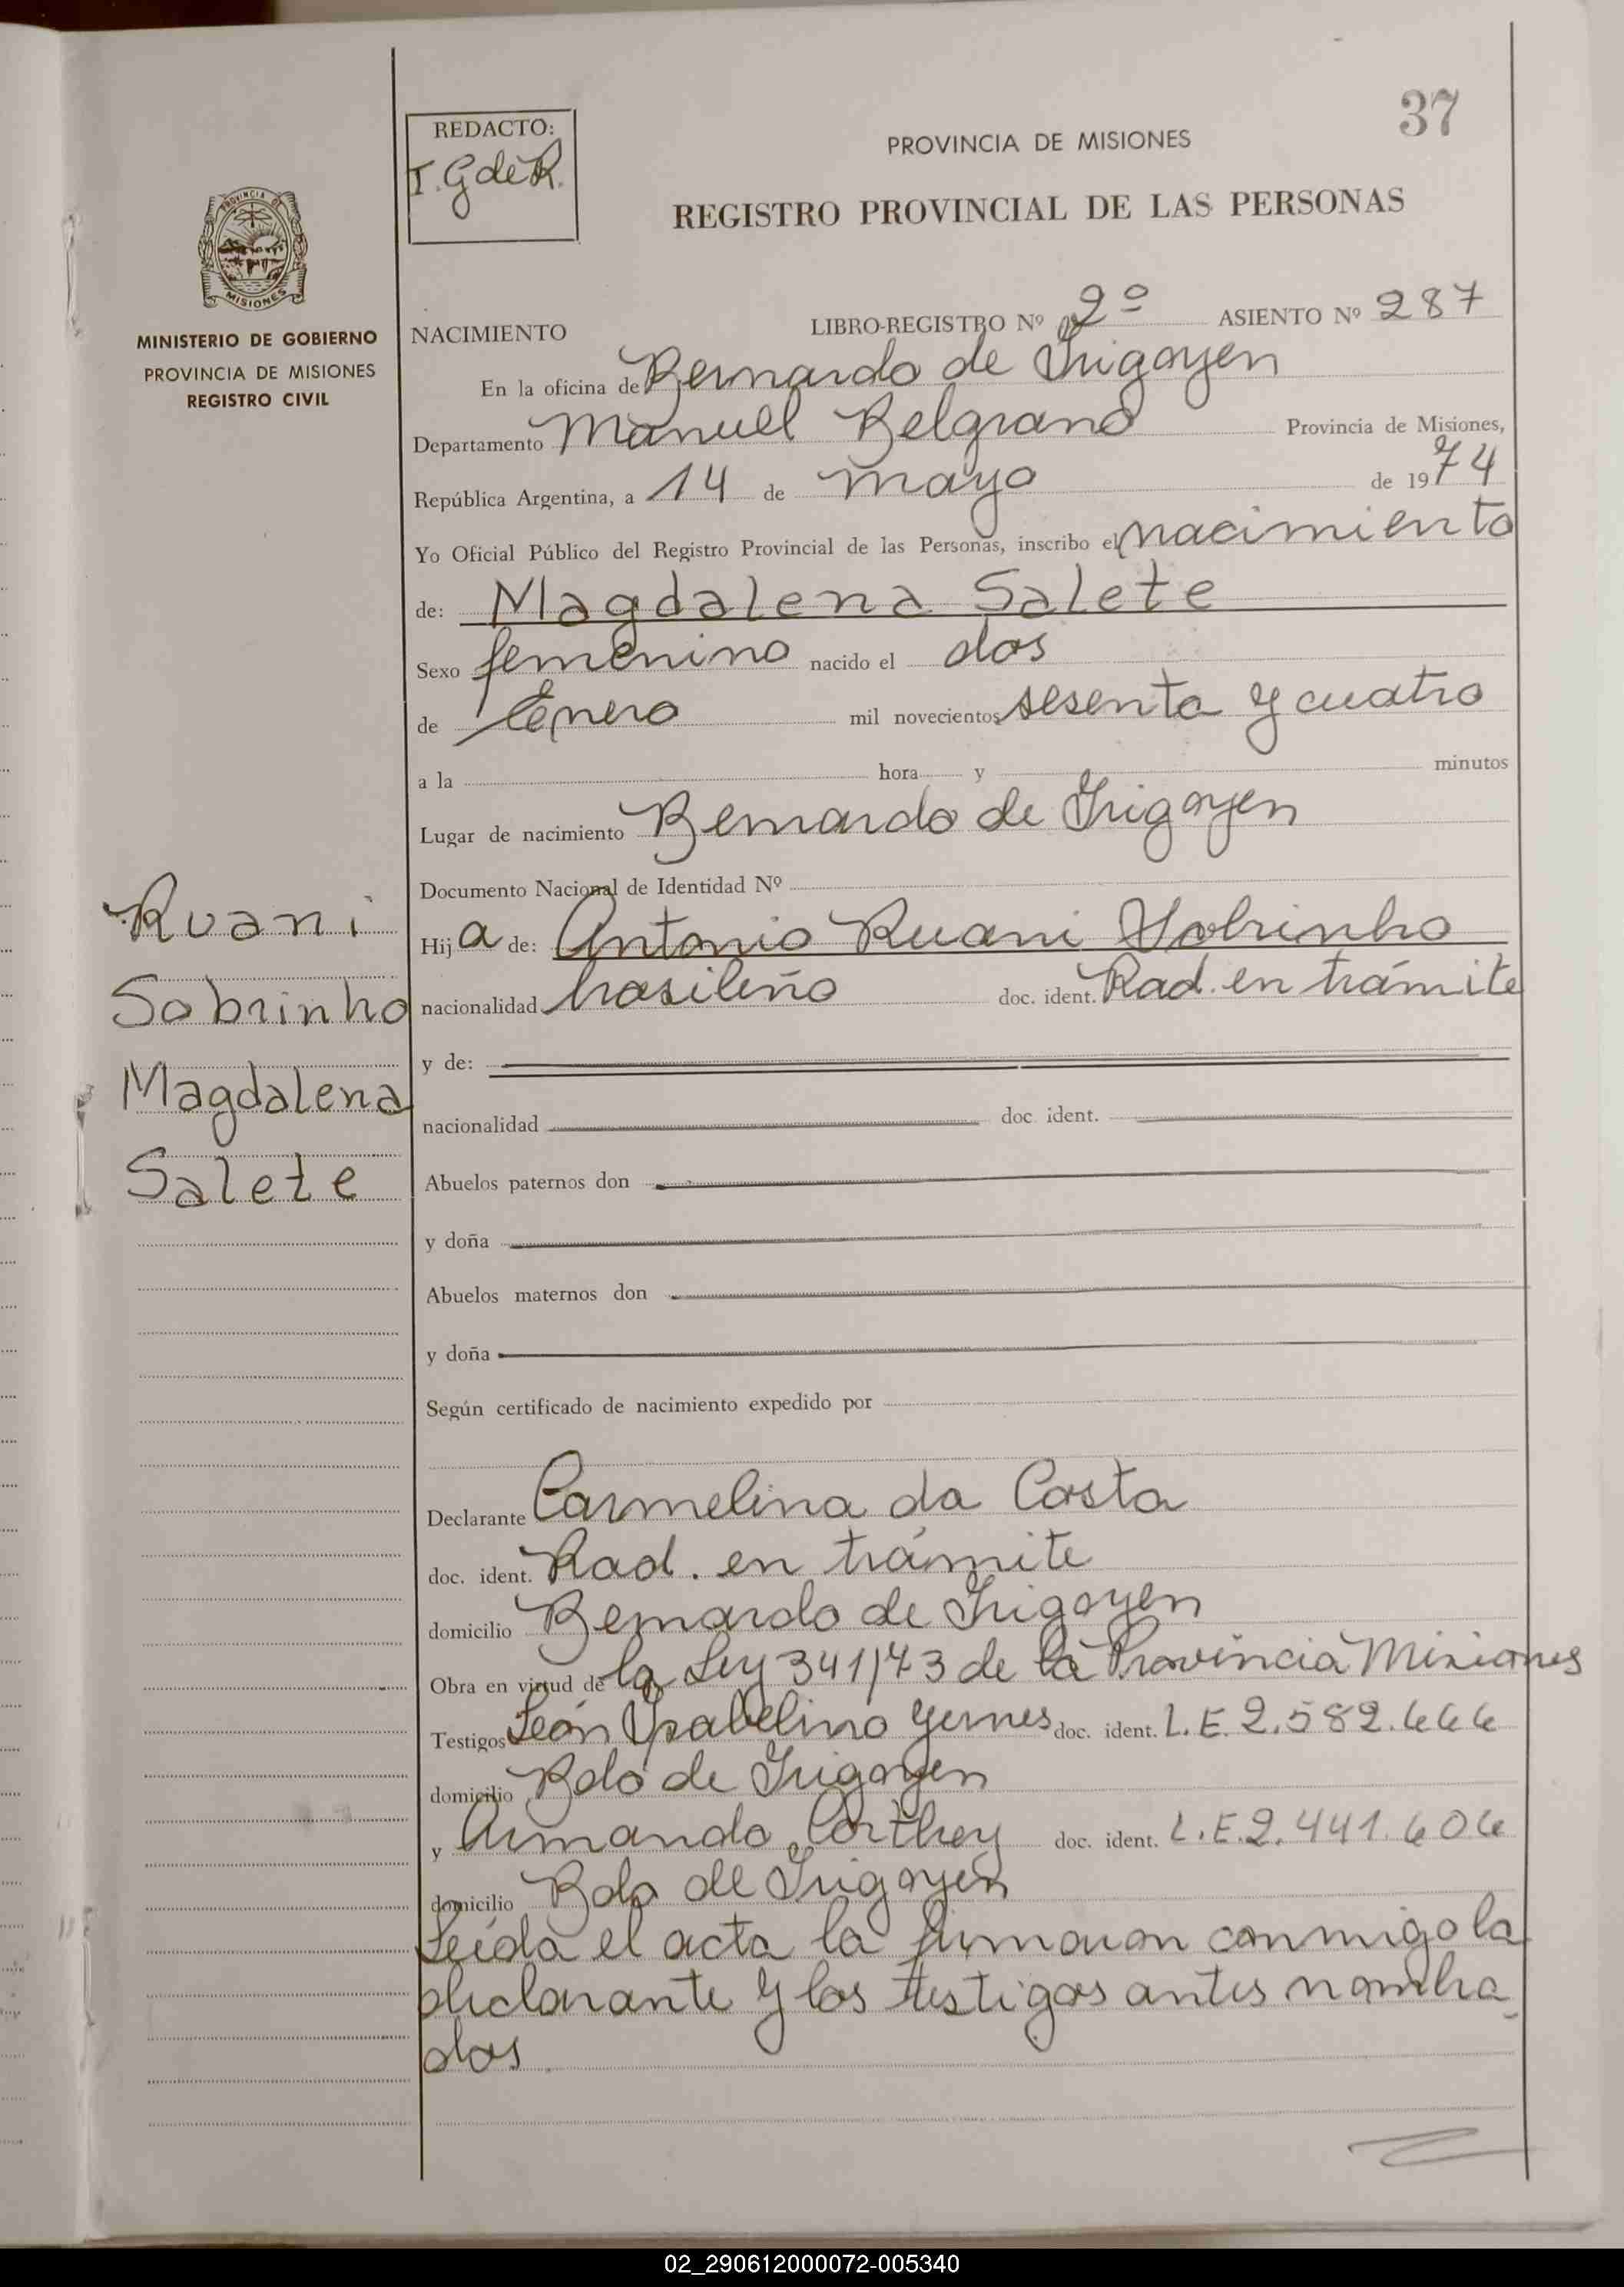 37
REDACTO:
I. G de R.
PROVINCIA DE MISIONES
REGISTRO PROVINCIAL DE LAS PERSONAS
PROVINCIA DE
MISIONES
MINISTERIO DE GOBIERNO
PROVINCIA DE MISIONES
REGISTRO CIVIL
NACIMIENTO LIBRO-REGISTRO Nº 2º ASIENTO Nº 287
En la oficina de Bernardo de Irigoyen
Departamento Manuel Belgrano Provincia de Misiones,
República Argentina, a 14 de mayo de 1974
Yo Oficial Público del Registro Provincial de las Personas, inscribo el nacimiento
de: Magdalena Salete
Sexo femenino nacido el dos
de Enero mil novecientos sesenta y cuatro
a la hora y minutos
Lugar de nacimiento Bernardo de Irigoyen
Documento Nacional de Identidad Nº
Ruani
Sobrinho
Magdalena
Salete
Hija de: Antonio Ruani Sobrinho
nacionalidad brasileño doc. ident. Rad. en trámite
y de:
nacionalidad doc. ident.
Abuelos paternos don
y doña
Abuelos maternos don
y doña
Según certificado de nacimiento expedido por
Declarante Carmelina da Costa
doc. ident. Rad. en trámite
domicilio Bernardo de Irigoyen
Obra en virtud de la Ley 341/73 de la Provincia Misiones
Testigos León Ysabelino Yernes doc. ident. L.E. 2.582.666
domicilio Bdo de Irigoyen
y Armando Corthey doc. ident. L.E. 2.441.606
domicilio Bdo de Irigoyen
Leída el acta la firmaron conmigo la
declarante y los testigos antes nombra-
dos
02_290612000072-005340